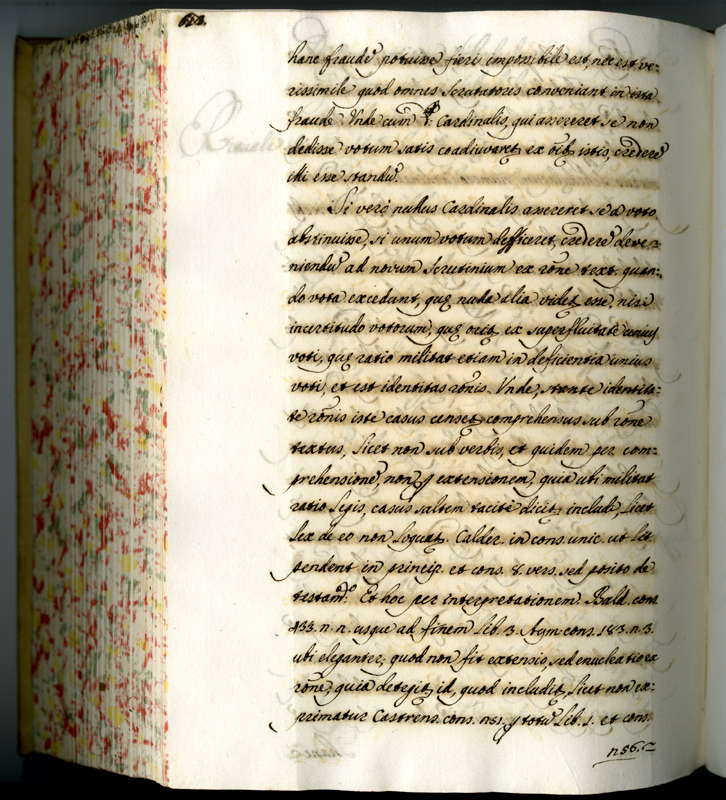 hanc fraudẽ potuisse fieri impossibile est, nec est ve:
rissimile quod omnes Scrutatores conveniant in ista
fraude. Unde cum Cardinalis, qui assereret se non
dedisse votum satis coadiuvaret ex istis, crederẽ
illi esse standũ.
Si verò nullus Cardinalis assereret se a voto
abstinuisse, si unum votum defficeret, crederẽ deve:
niendũ ad novum Scrutinium ex rõne text. quan:
do vota excedant, quę nulla alia videt esse, nisi
incertitudo votorum, quę orit ex superfluitate unius
voti, quę ratio militat etiam in deficientia unius
voti, et est identitas rõnis. Unde, stante identita:
te rõnis iste casus censet comprehensus sub rõne
textus, licet non sub verbis, et quidem per com:
prehensionẽ, non p extensionem, quia ubi militat
ratio legis, casus saltem tacitè dicit includi, licet
lex de eo non loquat. Calder. in cons. unic. ut lit.
pendent in princip. et cons. 8. vers. sed posito de
testam. Et hoc per interpretationem Bald. cons.
433. n. n. usque ad finem lib. 3. Aym. cons. 183. n. 3.
ubi eleganter, quod non fit extensio, sed enucleatio ex
rõne, quia detegit id, quod includit, licet non ex:
primatur Castrens. cons. p totũ lib. 1. et cons.